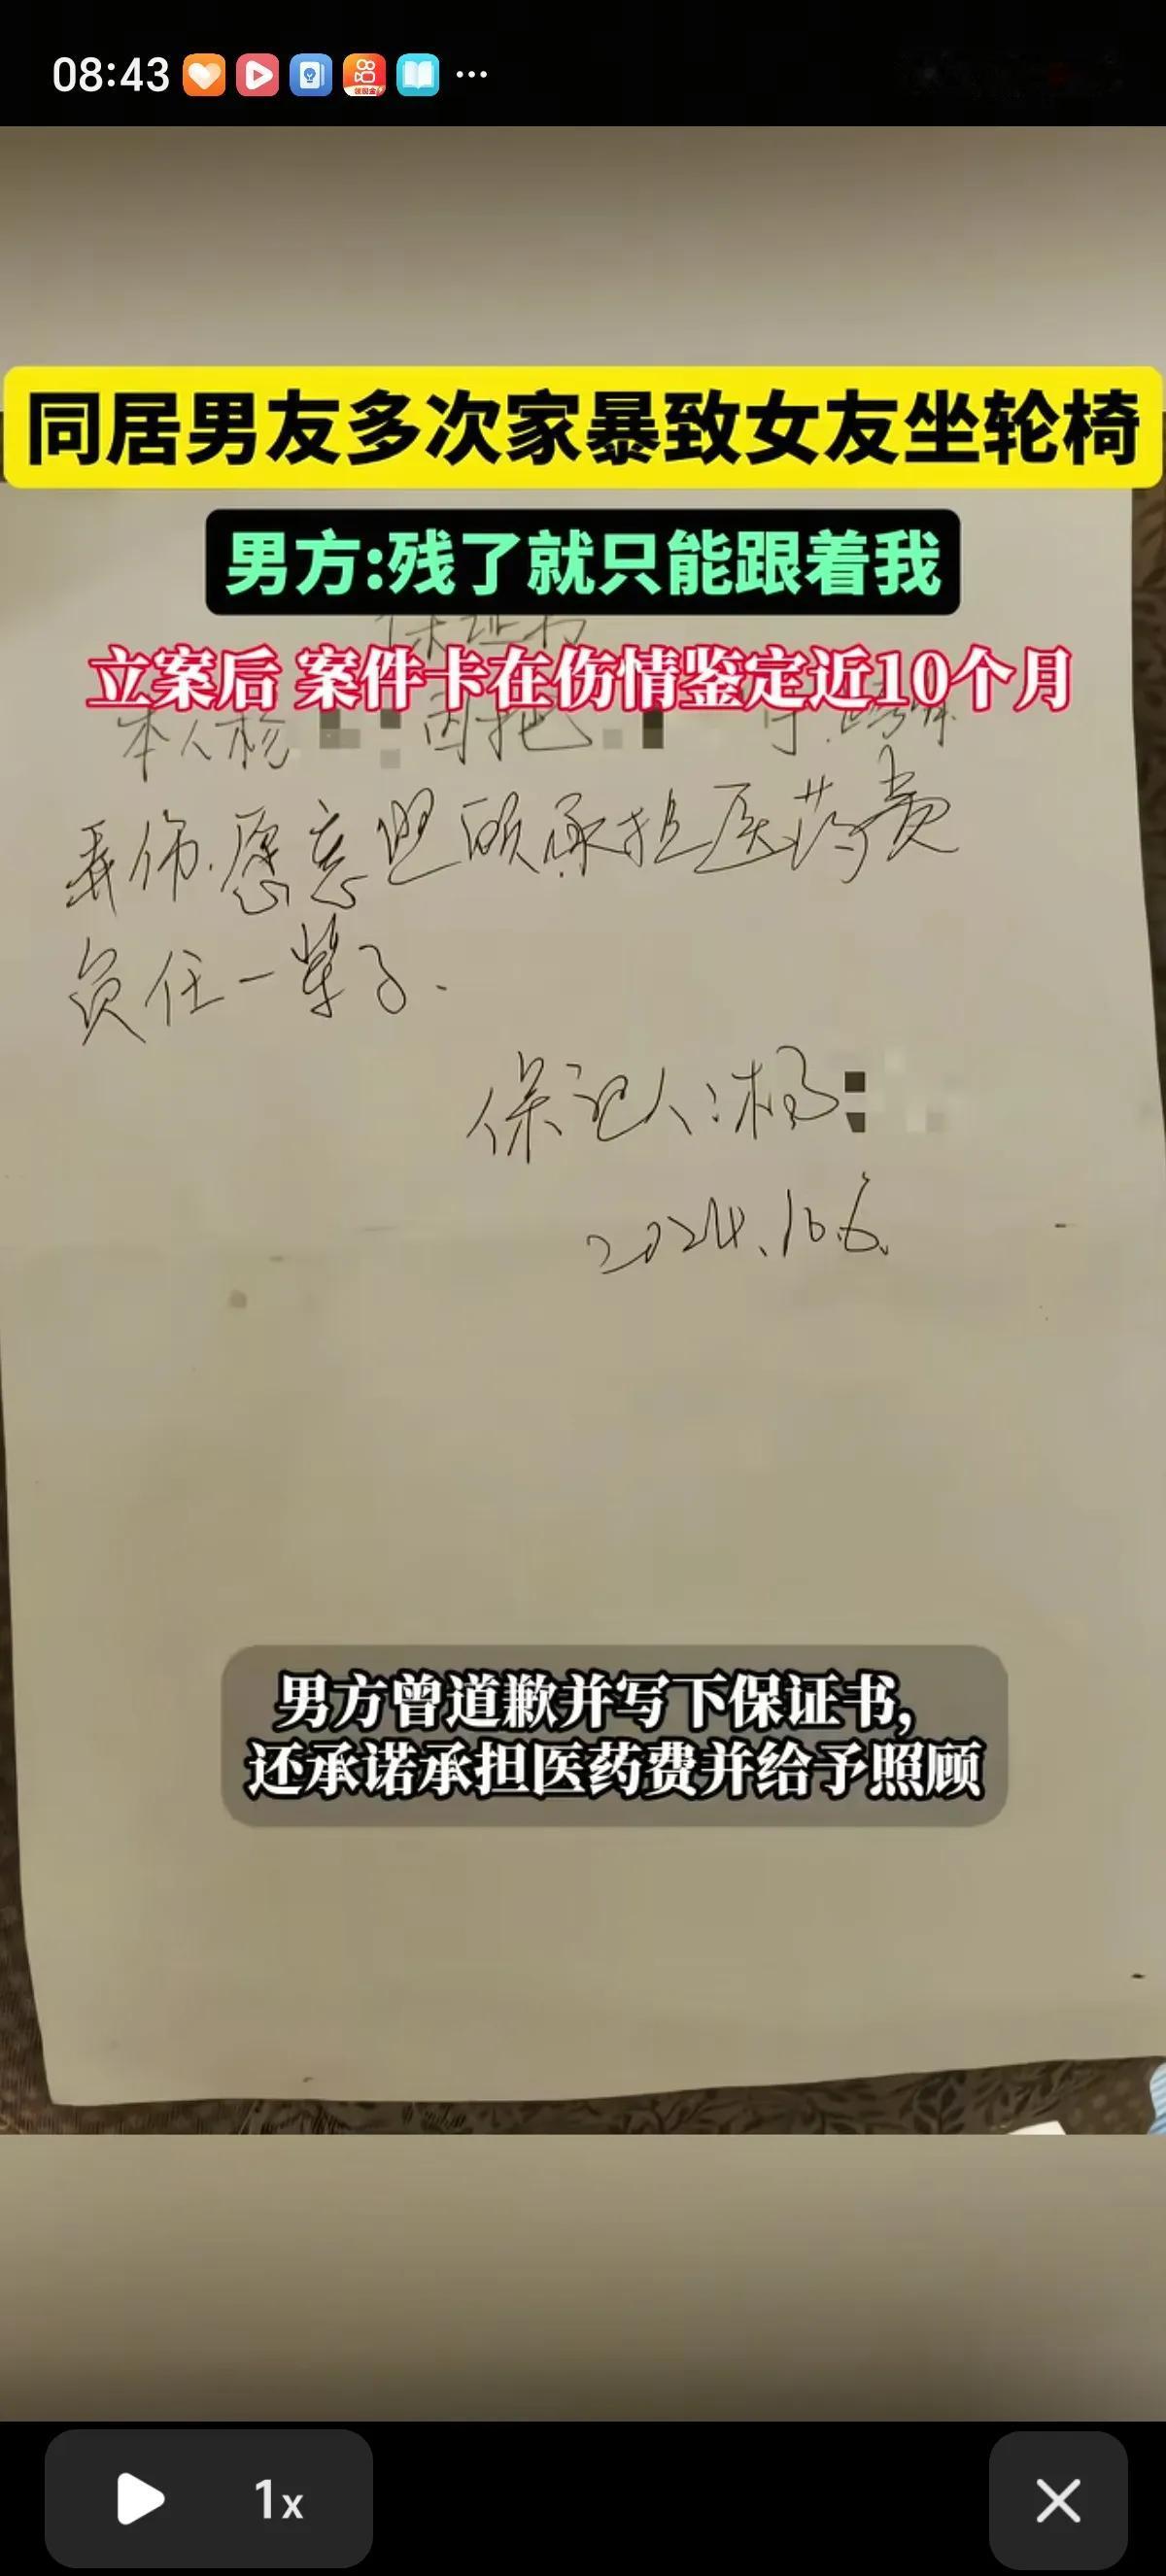 08:43
同居男友多次家暴致女友坐轮椅
男方:残了就只能跟着我
保证书
立案后 案件卡在伤情鉴定近10个月
本人杨 因把
弄伤.愿意 承担医药费
负任一辈子.
保证人:杨
2024.10.6.
男方曾道歉并写下保证书,
还承诺承担医药费并给予照顾
1x